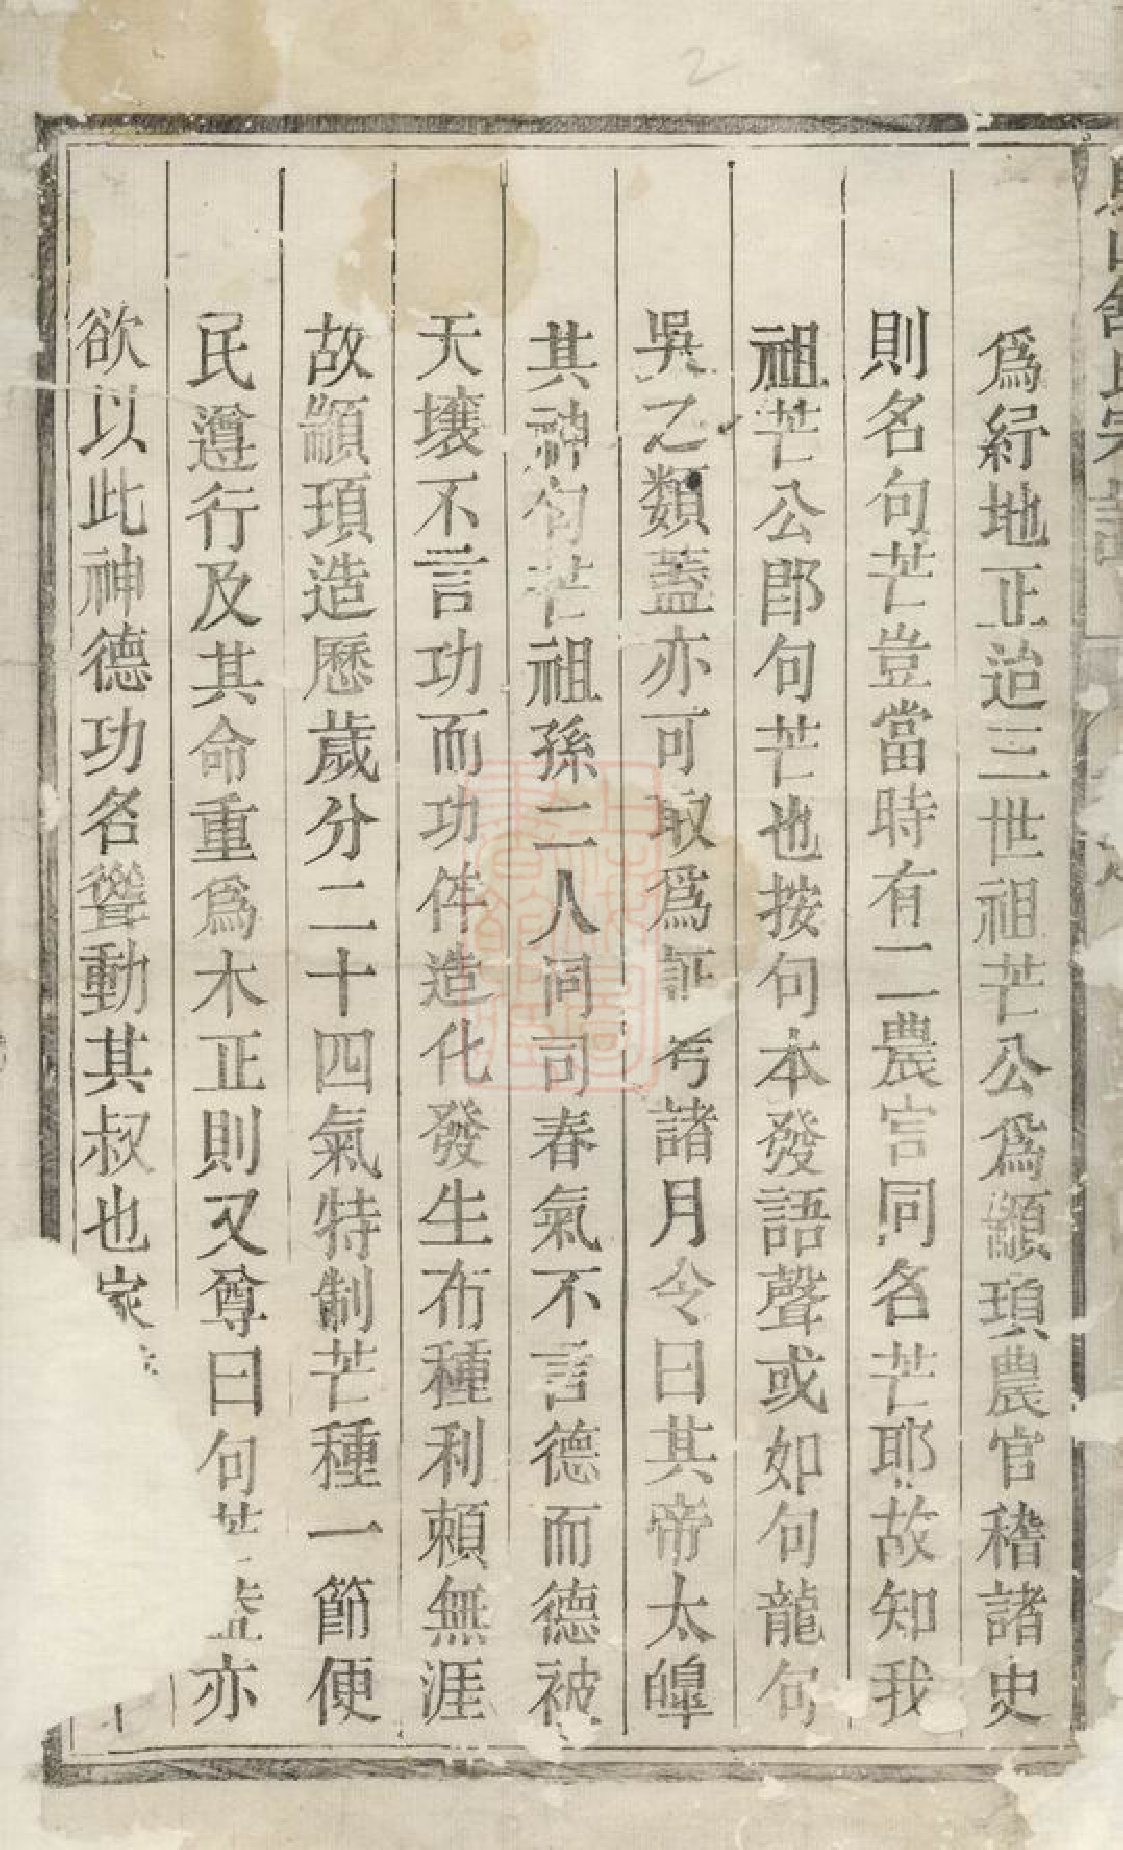 爲紆地正迨三世祖芒公爲顓頊農官稽諸史
則名句芒豈當時有二農官同名芒耶故知我
祖芒公卽句芒也按句本發語聲或如句龍句
吳之類蓋亦可取爲証考諸月令曰其帝太皥
其神句芒祖孫二人同司春氣不言德而德被
天壤不言功而功侔造化發生布種利賴無涯
故顓頊造歷歲分二十四氣特制芒種一節便
民遵行及其命重爲木正則又尊曰句芒蓋亦
欲以此神德功名聳動其叔也家